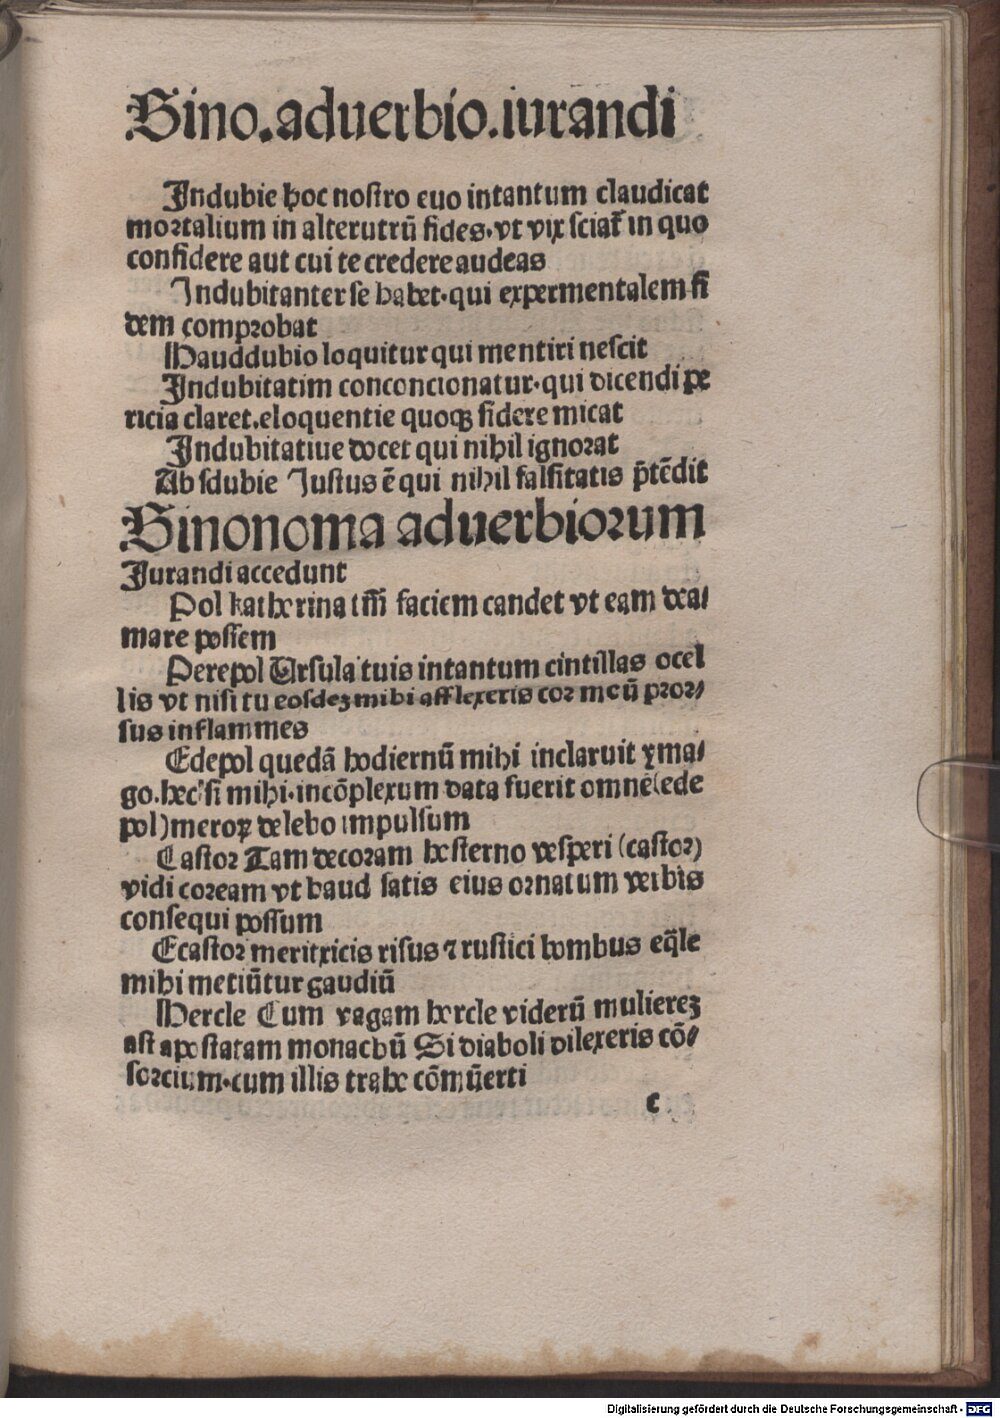 Sino.aduerbio.iurandi
Indubie hoc nostro euo intantum claudicat
mortalium in alterutrū fides.vt vix sciat̄ in quo
confidere aut cui te credere audeas
Indubitanter se habet.qui expermentalem fi
dem comprobat
Hauddubio loquitur qui mentiri nescit
Indubitatim conconcionatur.qui dicendi pe
ricia claret.eloquentie quoqꝫ sidere micat
Indubitatiue docet qui nihil ignorat
Absdubie Iustus ē qui nihil falsitatis p̄tēdit
Sinonoma aduerbiorum
Iurandi accedunt
Pol katherina tm̄ faciem candet vt eam dea/
mare possem
Perepol Ursula tuis intantum cintillas ocel
lis vt nisi tu eosdeꝫ mihi afflexeris cor meū pror/
sus inflammes
Edepol quedā hodiernū mihi inclaruit ymа/
go.hec si mihi.incōplexum data fuerit omnē(ede
pol)meroꝝ delebo impulsum
Castor Tam decoram hesterno vesperi (castor)
vidi coream vt haud satis eius ornatum verbis
consequi possum
Ecastor meritricis risus ⁊ rustici bombus eq̄le
mihi metiūtur gaudiū
Hercle Cum vagam hercle viderū muliereꝫ
ast apostatam monachū Si diaboli dilexeris cō/
sorcium.cum illis trahe cōmūerti
c
Digitalisierung gefördert durch die Deutsche Forschungsgemeinschaft - DFG